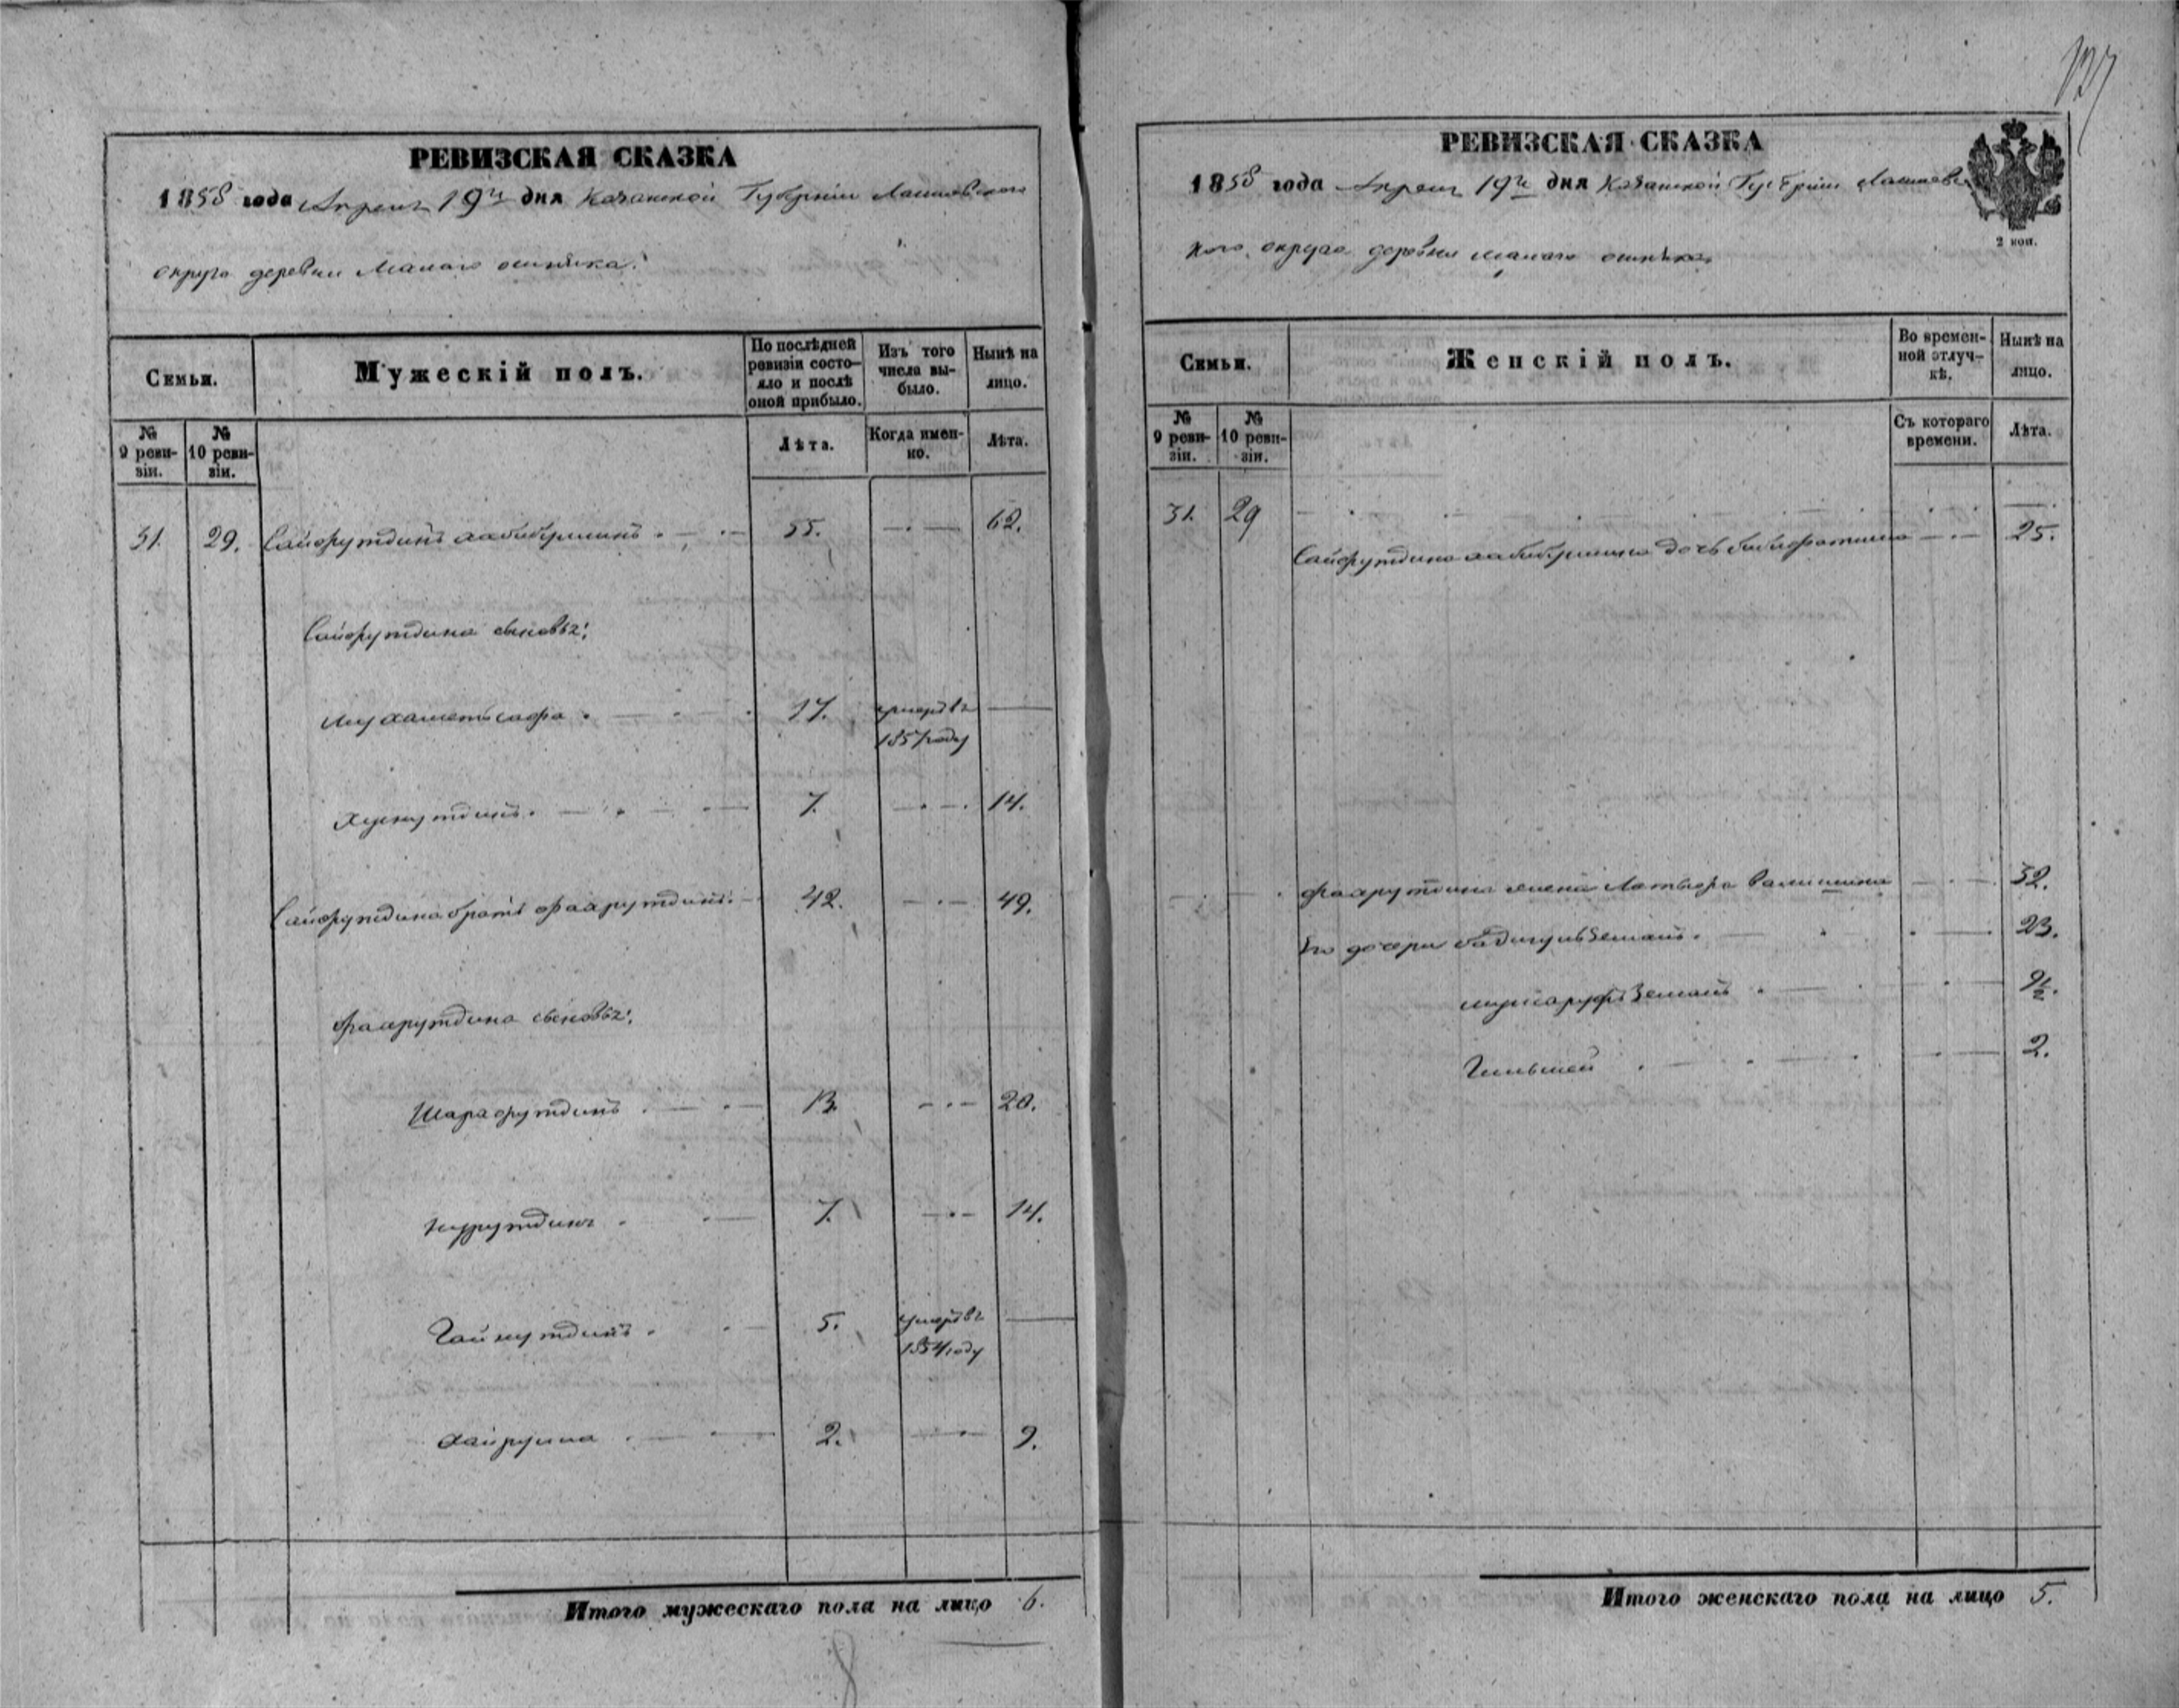 137
РЕВИЗСКАЯ СКАЗКА
1858 года Апреля 19го дня Казанской Губернии Лаишевского
округа деревни Малаго
Семьи.
Мужескій полъ.
По послѣдней ревизіи состояло и послѣ оной прибыло.
Изъ того числа выбыло.
Нынѣ на лицо.
№ 9 ревизіи.
№ 10 ревизіи.
Лѣта.
Когда именно.
Лѣта.
31. 29. Сайфутдинъ 55. 62.
Сайфутдина сыновья:
Мухаметсафа 17. умеръ въ
1857 году
7. 14.
Сайфутдина братъ Фахрутдинъ 42. 49.
Фахрутдина сыновья:
Шарафутдинъ 13. 20.
Нурутдинъ 7. 14.
Гайнутдинъ 5. умеръ въ
1854 году
Хайрулла 2. 9.
Итого мужескаго пола на лицо 6.
РЕВИЗСКАЯ СКАЗКА
2 коп.
1858 года Апреля 19го дня Казанской Губернии Лаишевс
кого округа деревни Малаго
Семьи.
Женскій полъ.
Во временной отлучкѣ.
Нынѣ на лицо.
№ 9 ревизіи.
№ 10 ревизіи.
Съ котораго времени.
Лѣта.
31. 29
Сайфутдина дочь 25.
Фахрутдина жена 32.
Его дочери 23.
9½.
2.
Итого женскаго пола на лицо 5.